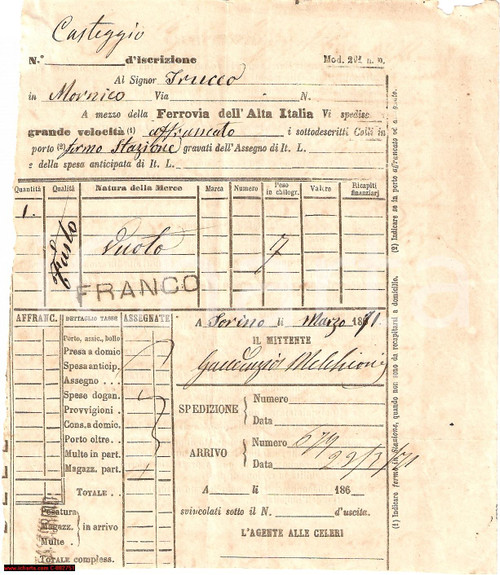 Casteggio
N.° d'iscrizione Mod. 201 n. n.
Al Signor Trucco
in Mornico Via N.
A mezzo della Ferrovia dell'Alta Italia Vi spedisce
grande velocità (1) affrancato i sottodescritti Colli in
porto (2) fermo Stazione gravati dell'Assegno di It. L.
e della spesa anticipata di It. L.
Quantità Qualità Natura della Merce Marca Numero Peso in chilogr. Valore Ricapiti finanziarj
1. Fusto Vuoto 7
FRANCO
AFFRANC. DETTAGLIO TASSE ASSEGNATE
Porto, assic., bollo
Presa a domic
Spesa anticip.
Assegno
Spese dogan.
Provvigioni
Cons. a domic.
Porto oltre
Multe in part
Magazz. part.
TOTALE
Pesatura
Magazz. in arrivo
Multe
TOTALE compless.
A Torino li Marzo 1871
IL MITTENTE
Melchioni
SPEDIZIONE Numero
Data
ARRIVO Numero 679
Data 29/3/71
A li 186
svincolati sotto il N. d'uscita.
L'AGENTE ALLE CELERI
(2) Indicare se in porto affrancato od assegnato.
(1) Indicare fermo in Stazione, quando non sono da recapitarsi a domicilio.